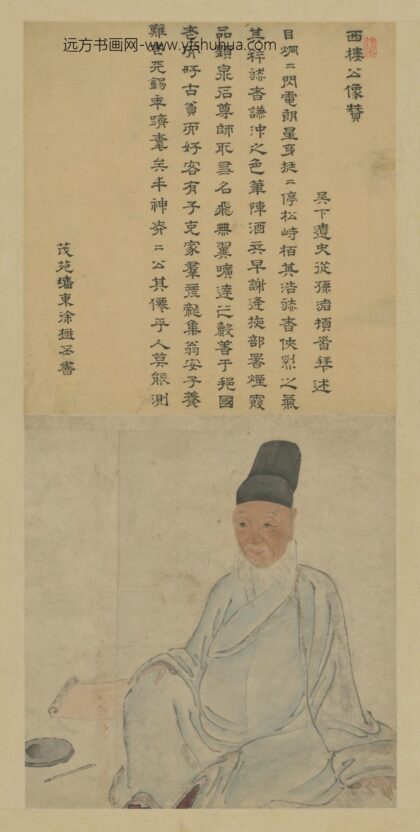 远方书画网-www.yfshuhua.com
西樓公像贊
吳下遺史從孫 頓首拜述
目炯二閃電朗星身挺二停松峙栢其浩 者俠烈之氣
其粹 者謙沖之色筆陣酒兵早謝逢掖部署煙霞
品 泉石尊師取 名飛無翼曠達之 善于 國
老 好古負而好客有子克家羣 集翁安子養
難老天錫年躋耄矣丰神奕二公其僊乎人莫能測
茂苑墻東徐 丞書